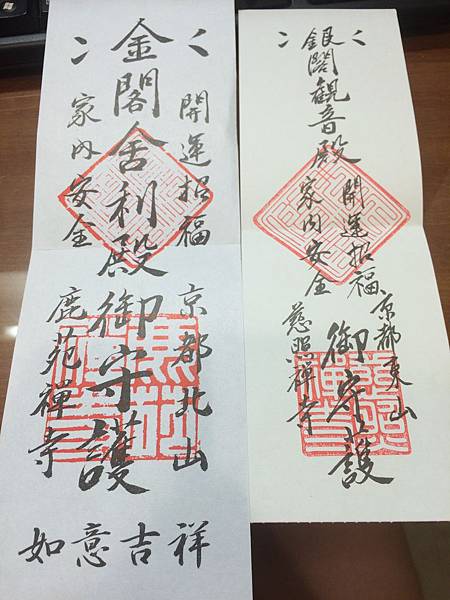 金閣舍利殿御守護
開運招福
家内安全
京都北山
鹿苑禪寺
如意吉祥
銀閣観音殿御守護
開運招福
家内安全
京都東山
慈照禪寺